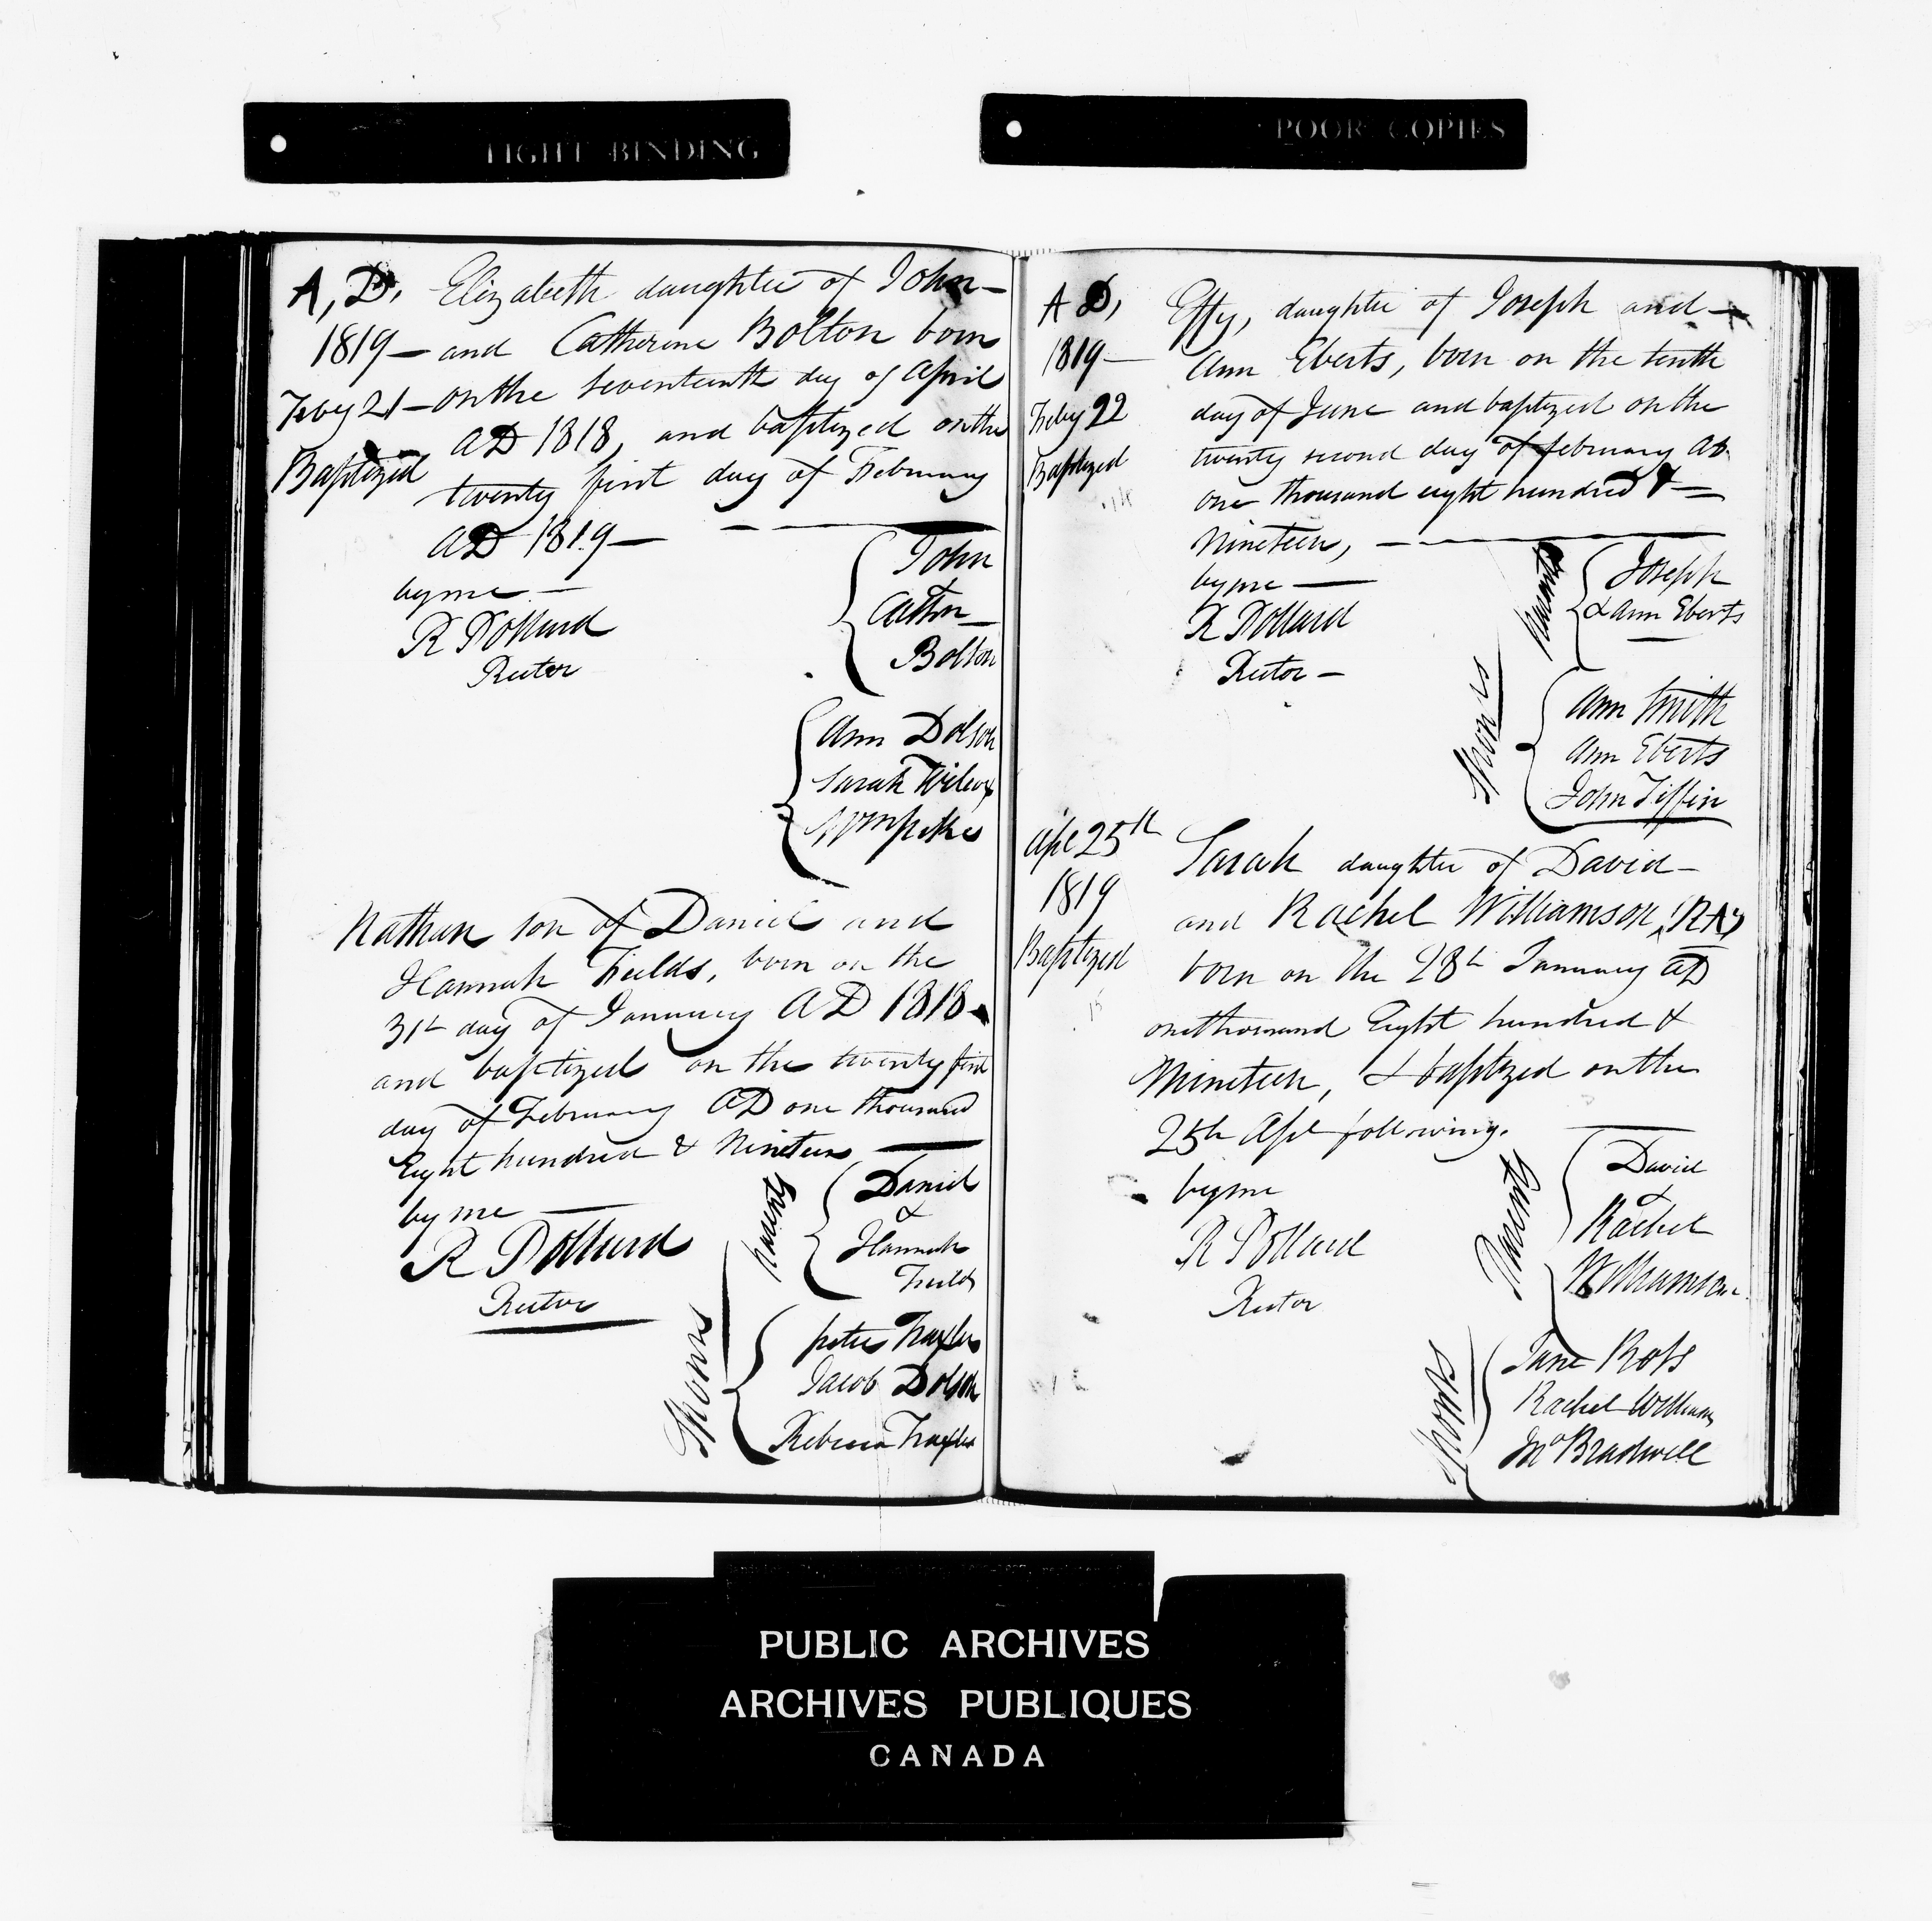 TIGHT BINDING
POOR COPIES
A, D. Elizabeth daughter of John—
1819— and Catherine Bolton born
Feby 21— on the seventeenth day of April
AD 1818, and baptized on the
Baptized twenty first day of February
AD 1819—
by me —
R Pollard
Rector
John
Cathn—
Bolton
Ann Dolson
Sarah Wilcox
Nathan son of Daniel and
Hannah Fields, born on the
31st day of January AD 1818—
and baptized on the twenty first
day of February AD one thousand
Eight hundred & Nineteen
by me —
R Pollard
Rector
Parents
Daniel
&
Hannah
Fields
Sponsrs
peter Traxler
Jacob Dolson
Rebecca Traxler
A D,
1819—
Feby 22
Baptized
Effy, daughter of Joseph and—
Ann Eberts, born on the tenth
day of June and baptized on the
twenty second day of february AD.
one thousand eight hundred &—
Nineteen, —
by me —
R Pollard
Rector —
Parents
Joseph
& Ann Eberts
Sponsrs
Ann Smith
Ann Eberts
John Tiffin
Apl 25th
1819
Baptized
Sarah daughter of David—
and Rachel Williamson, (RA)
born on the 28th January AD
one thousand Eight hundred &
Nineteen, & baptized on the
25th Apl following.
by me
R Pollard
Rector
Parents
David
&
Rachel
Williamson
Sponsrs
Jane Ross
Rachel William
Bradwell
PUBLIC ARCHIVES
ARCHIVES PUBLIQUES
CANADA